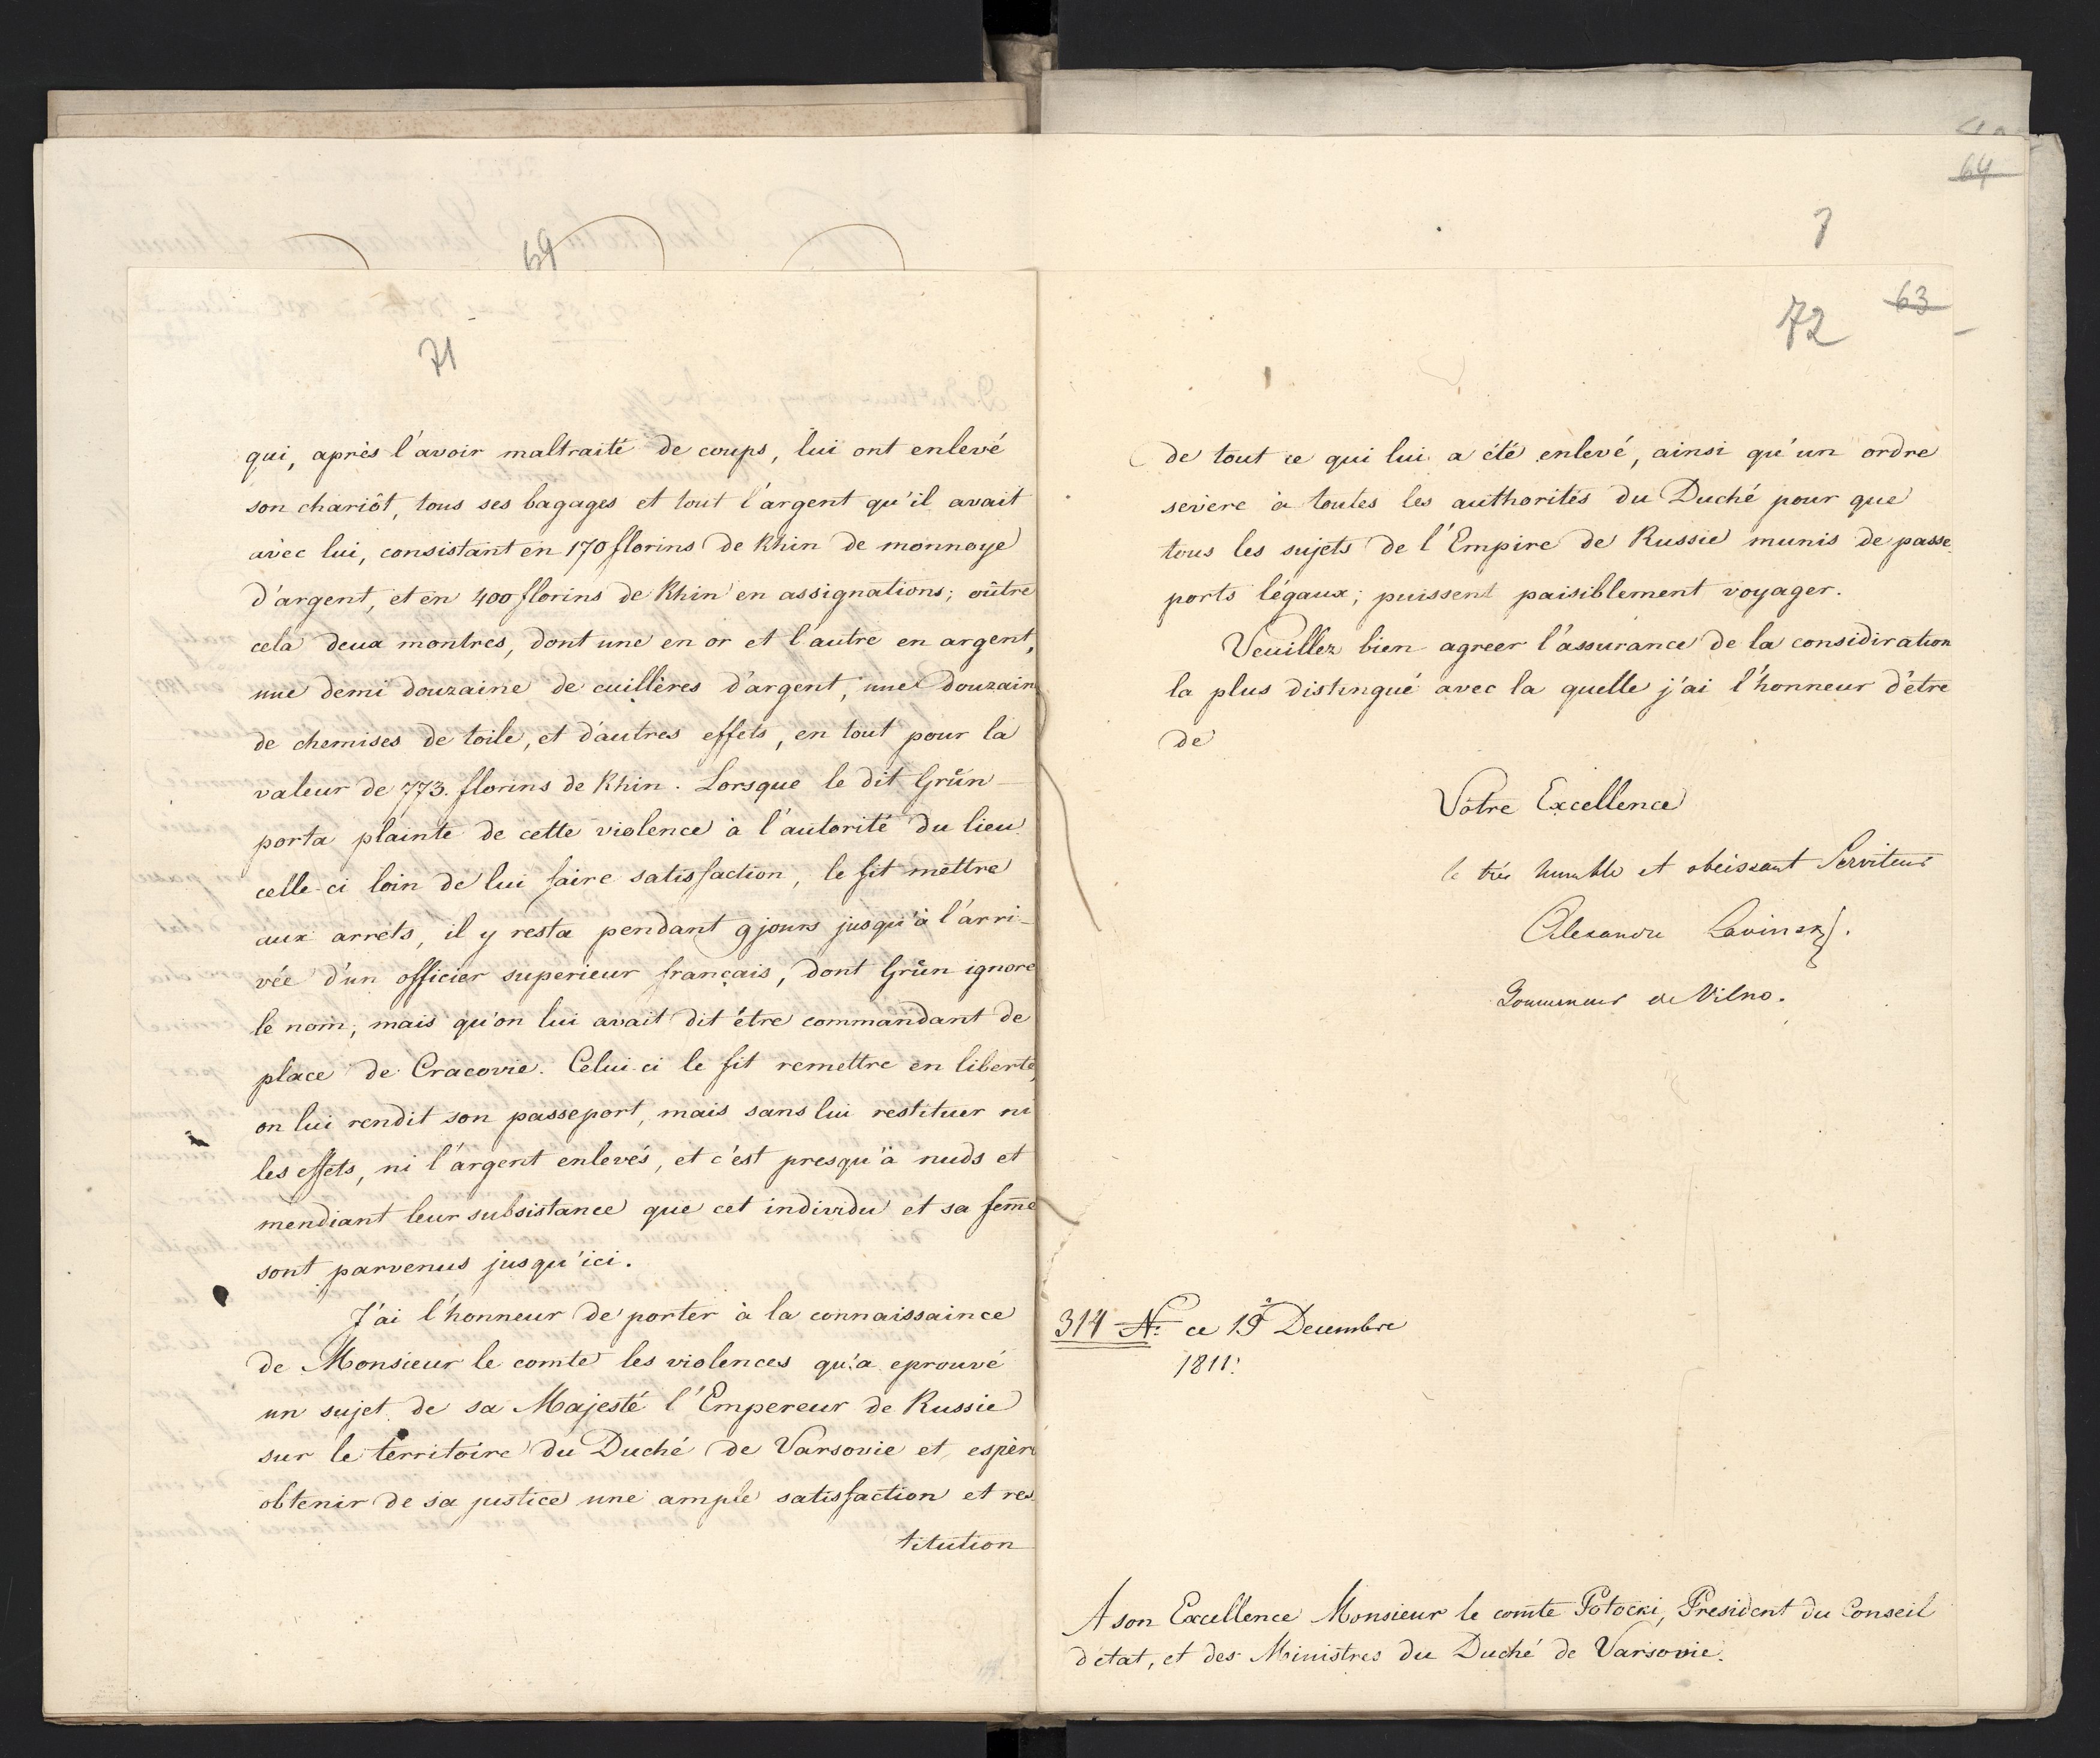 69
71
qui, après l'avoir maltraité de coups, lui ont enlevé
son chariôt, tous ses bagages et tout l'argent qu'il avait
avec lui, consistant en 170 florins de Rhin de monnoye
d'argent, et en 400 florins de Rhin en assignations; oûtre
cela deux montres, dont une en or et l'autre en argent,
une demi douzaine de cuillères d'argent, une douzain
de chemises de toile, et d'autres effets, en tout pour la
valeur de 773. florins de Rhin. Lorsque le dit Grün
porta plainte de cette violence à l'autorité du lieu
celle-ci loin de lui faire satisfaction, le fit mettre
aux arrets, il y resta pendant 9 jours jusqu'à l'arri-
vée d'un officier superieur français, dont Grün ignore
le nom, mais qu'on lui avait dit être commandant de
place de Cracovie. Celui-ci le fit remettre en liberté,
on lui rendit son passeport, mais sans lui restituer ni
les effets, ni l'argent enlevés, et c'est presqu'à nuds et
mendiant leur subsistance que cet individu et sa fem̄e
sont parvenus jusqu'ici.
J'ai l'honneur de porter à la connaissaince
de Monsieur le comte les violences qu'a eprouvé
un sujet de sa Majesté l'Empereur de Russie
sur le territoire du Duché de Varsovie et espère
obtenir de sa justice une ample satisfaction et res-
titution
64
7
63
72
de tout ce qui lui a été enlevé, ainsi qu'un ordre
severe à toutes les authorités du Duché pour que
tous les sujets de l'Empire de Russie munis de passe-
ports légaux; puissent paisiblement voyager.
Veuillez bien agreer l'assurance de la considiration
la plus distingué avec la quelle j'ai l'honneur d'être
de
Vôtre Excellence
le très humble et obeissant Serviteur
Alexandre Lavinsky.
Gouverneur de Vilno.
314 N: ce 19 Decembre
1811:
A son Excellence Monsieur le comte Potocki, President du Conseil
d'état, et des Ministres du Duché de Varsovie.